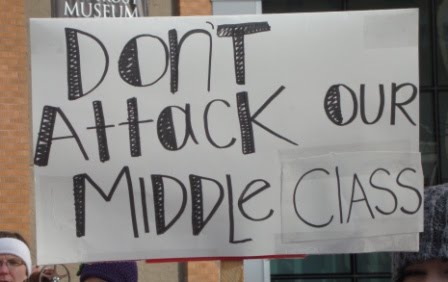 MUSEUM
DON'T
AttacK OUR
MIDDLe CLASS